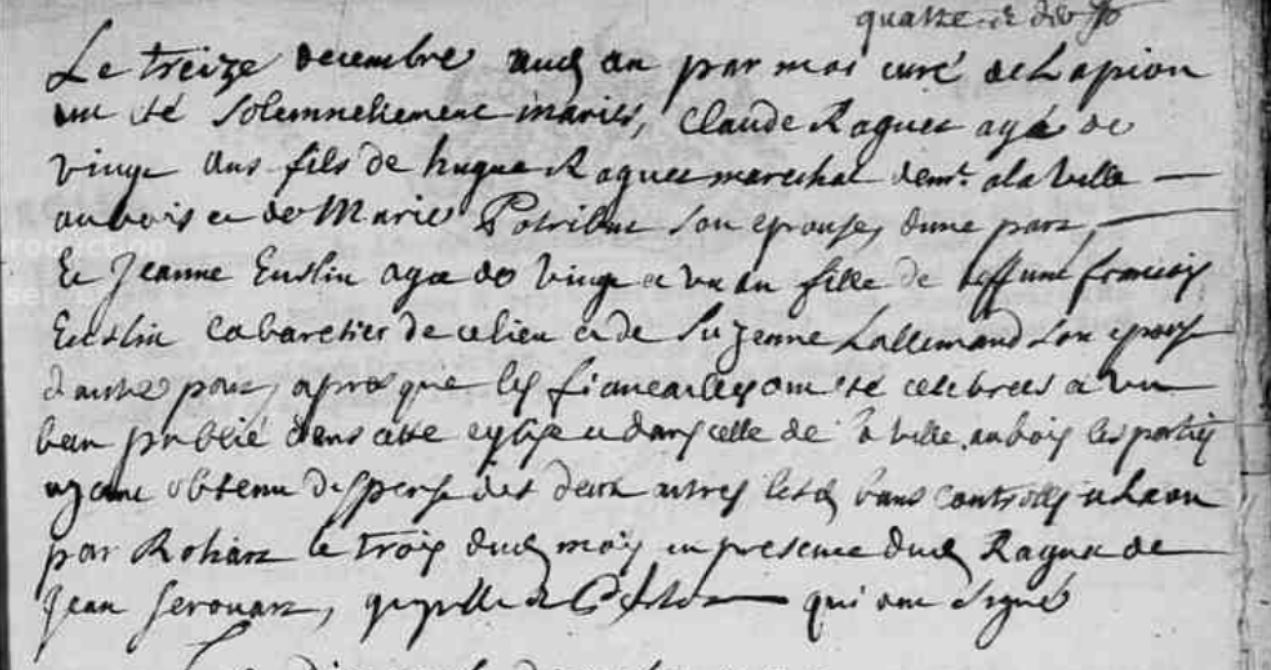 quatre
Le treize decembre aud an par moi curé de Lapion
ont été solemnellement mariés, Claude Raguet agé de
vingt ans fils de hugue Raguet marechal demt. a la ville
aubois et de Marie son epouse, dune part,
Et Jeanne Eustin agée de vingt et un an fille de deffunt francois
Eustin cabaretier de ce lieu et de Suzenne Lallemand son epouse
dautre part, apres que les fiancailles ont été celebrées et un
ban publié dans cette eglise et dans celle de la ville aubois les parties
ayant obtenu dispense des deux autres lesd bans controllés a Laon
par le trois dud mois en presence dud Raguet de
Jean qui ont signés